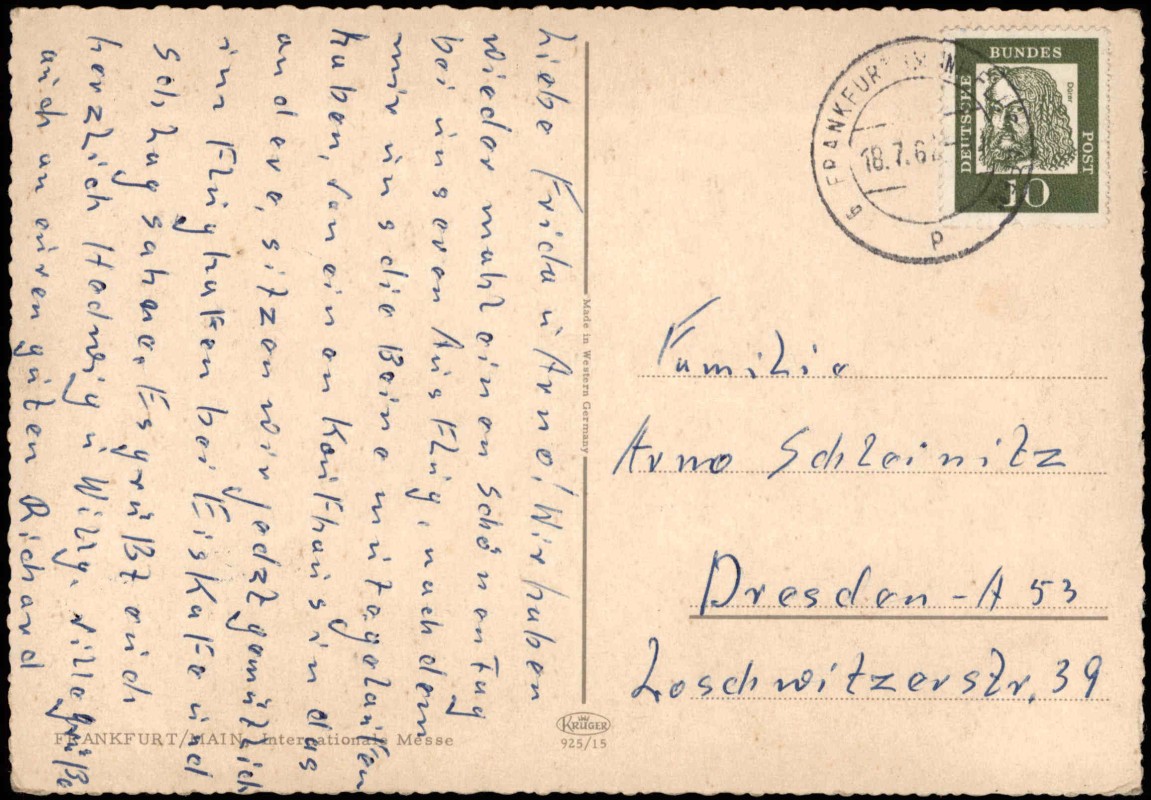 Liebe Frida u Arno! Wir haben
wieder mahl einen schönen Tag
bei unseren Ausflug, nachdem
wir uns die Beine müte gelaufen
haben, von einen Kaufhaus in das
andere, sitzen wir jedzt gemützlich
im Flughafen bei Eiskafe und
Schlag sahne. Es grüßt euch
herzlich Hedweig u Willy. viele grüße
auch an euren guten Richard
FRANKFURT/MAIN Internationale Messe
Made in Western Germany
KRÜGER
925/15
6 FRANKFURT
18.7.6
P
DEUTSCHE
BUNDES
POST
Dürer
10
Familie
Arno Schleinitz
Dresden - A 53
Loschwitzerstr. 39